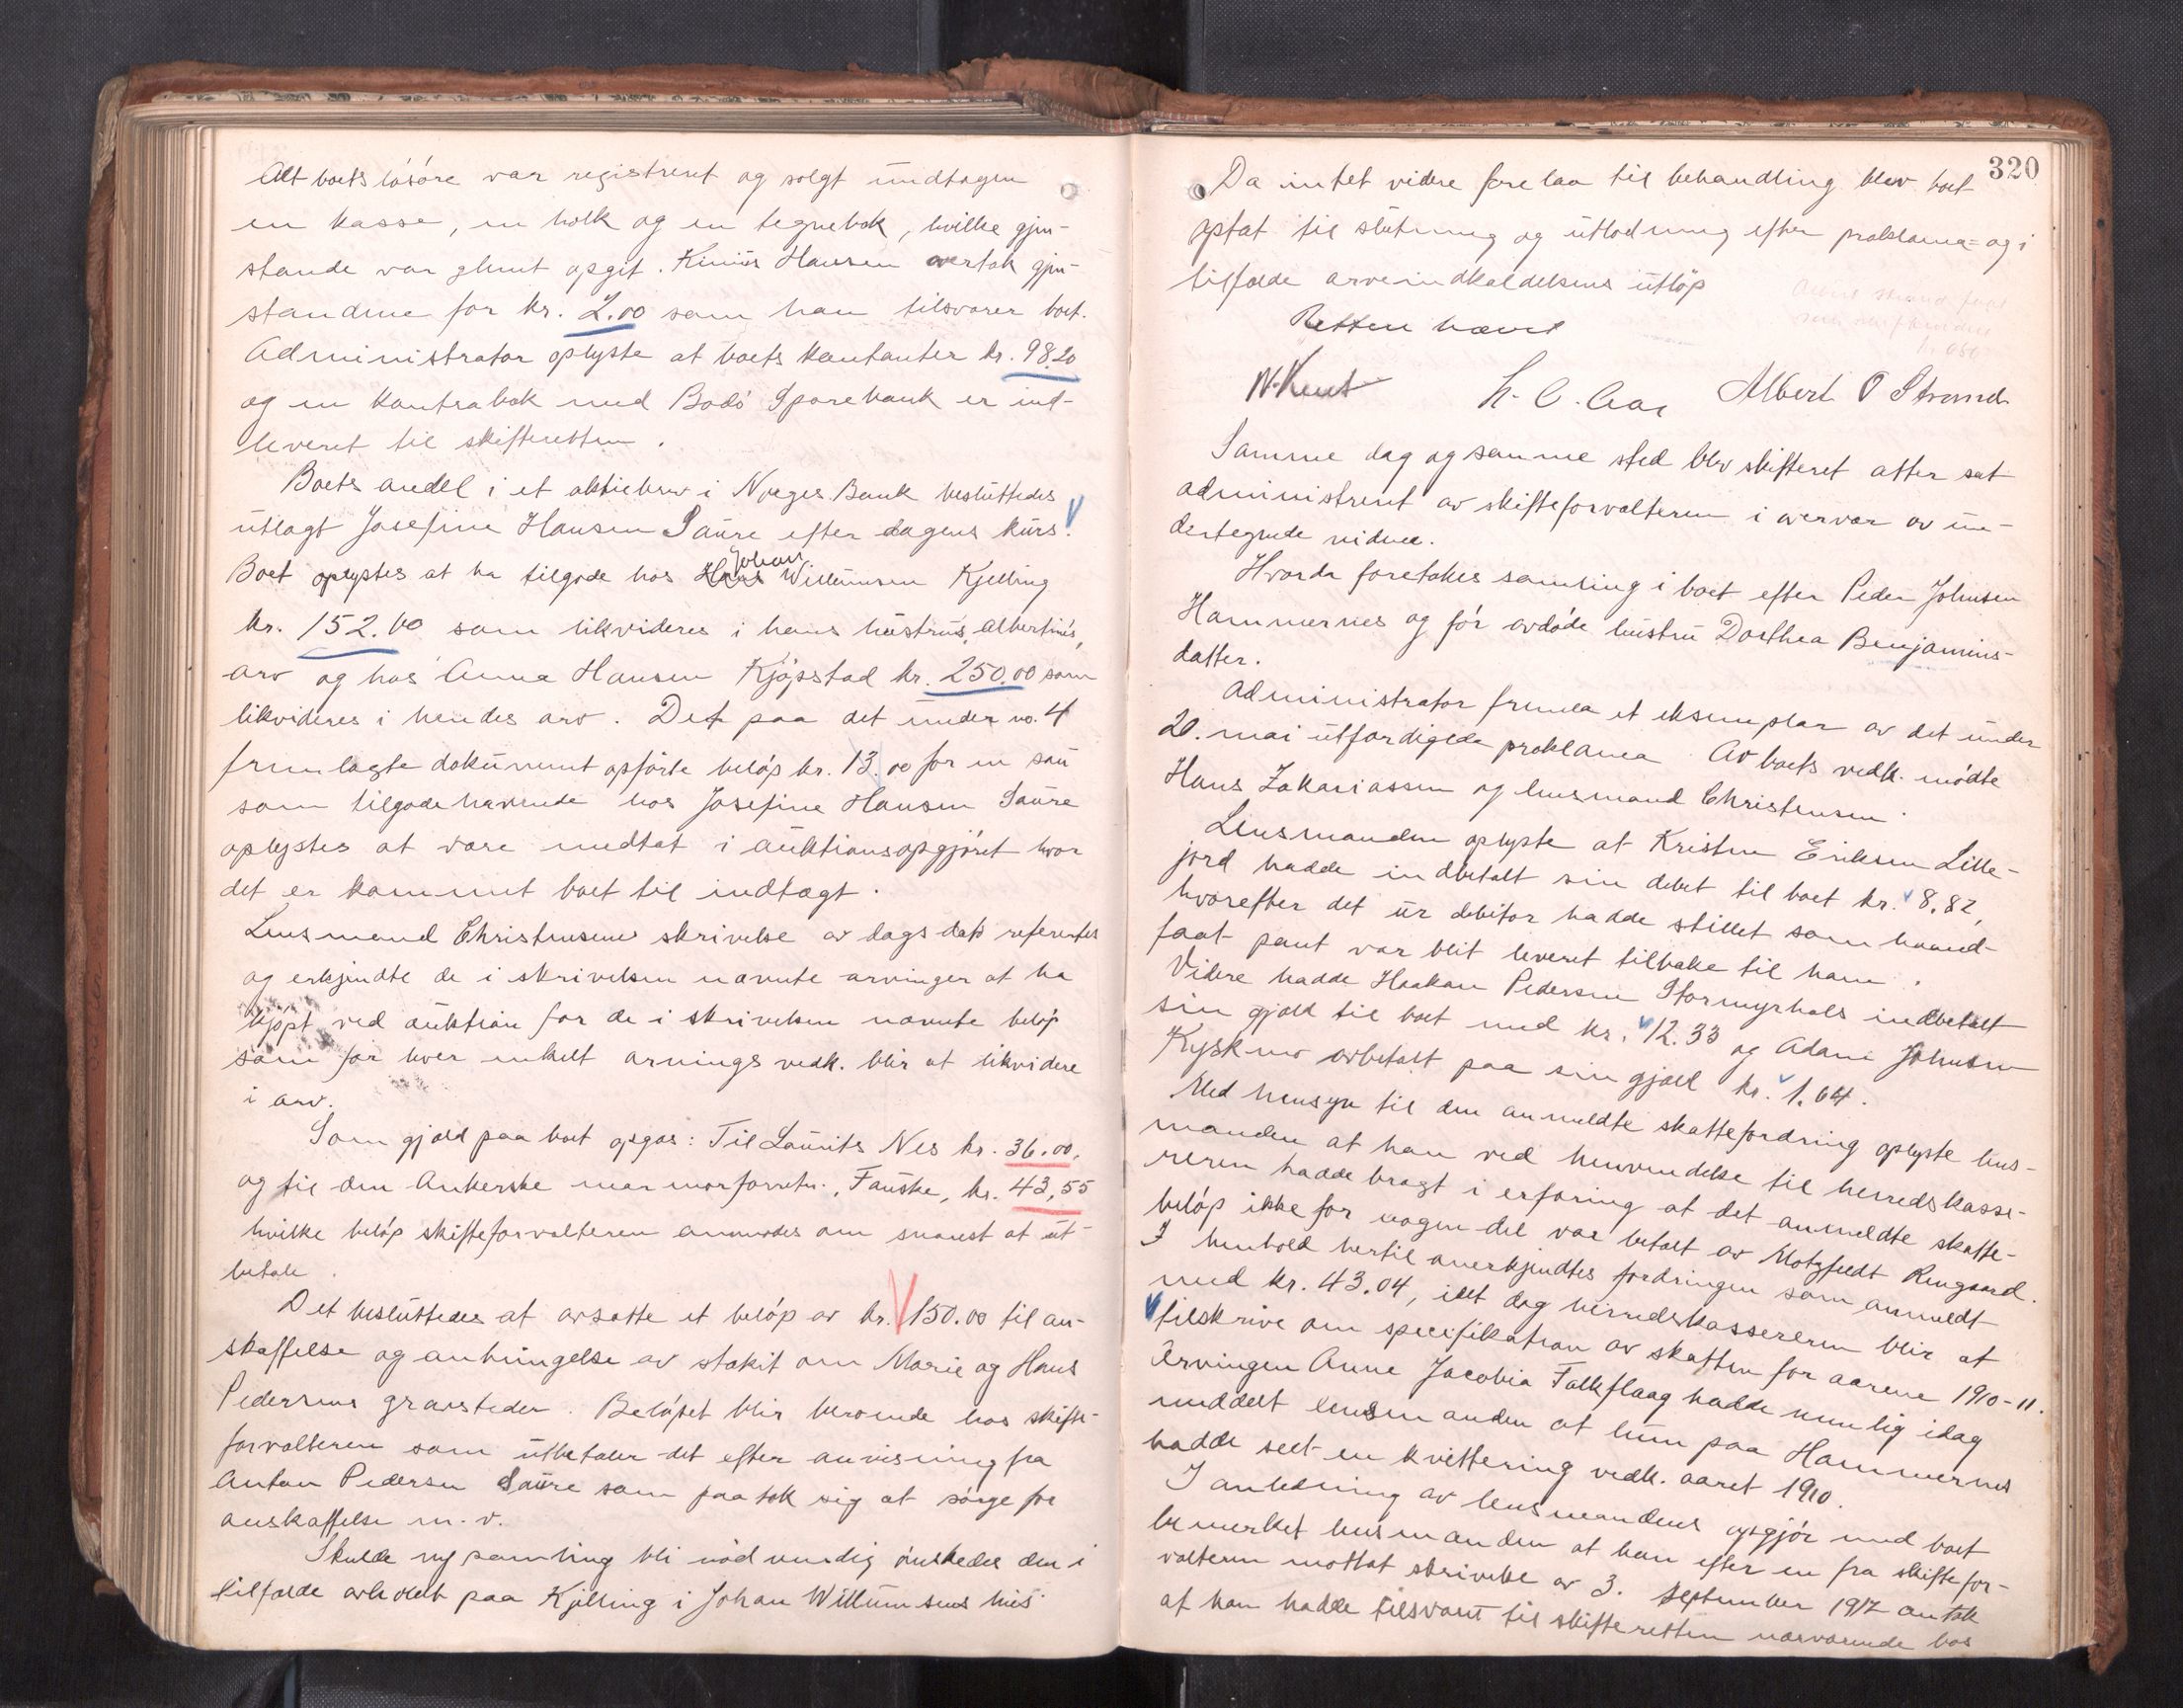 Alt boets løsøre var registreret og solgt undtagen
en kasse, en holk og en tegnebok, hvilke gjen-
stande var glemt opgit. Kinius Hansen overtok gjen-
standene for kr. 2.00 som han tilsvarer boet.
Administrator oplyste at boets kontanter kr. 98.20
og en kontrabok med Bodø Sparebank er ind-
leveret til skifteretten.
Boets andel i et aktiebrev i Norges Bank besluttedes
utlagt Josefine Hansen Saure efter dagens kurs.
Boet oplystes at ha tilgode hos Hans Johan Willumsen Kjelling
kr. 152.00 som likvideres i hans hustrus, Albertines,
arv og hos Anna Hansen Kjøpstad kr. 250.00 som
likvideres i hendes arv. Det paa det under no. 4
fremlagte dokument opførte beløp kr. 13.00 for en sau
som tilgodehavende hos Josefine Hansen Saure
oplystes at være medtat i auktionsopgjøret hvor
det er kommet boet til indtægt.
Lensmand Christensens skrivelse av dags dato refereertes
og erkjendte de i skrivelsen nævnte arvinger at ha
kjøpt ved auktion for de i skrivelsen nævnte beløp
som for hver enkelt arvings vedk. blir at likvidere
i arv.
Som gjæld paa boet opgas: Til Laurits Nes kr. 36.00,
og til den Ankerske marmorforretn., Fauske, kr. 43,55
hvilke beløp skifteforvalteren anmodes om snarest at ut-
betale.
Det besluttedes at avsætte et beløp av kr. 150.00 til an-
skaffelse og anbringelse av stakit om Marie og Hans
Pedersens gravsteder. Beløpet blir beroende hos skifte-
forvalteren som utbetaler det efter anvisning fra
Anton Pedersen Saure som paatok sig at sørge for
anskaffelse m.v.
Skulde ny samling bli nødvendig ønskedes den i
tilfælde avholdt paa Kjelling i Johan Willumsens hus.
320
Da intet videre forelaa til behandling blev boet
optat til slutning og utlodning efter proklama- og i
tilfælde arveindkaldelsens utløp
Retten hævet
Albert O Strand
Samme dag og samme sted blev skifteret atter sat
administreret av skifteforvalteren i overvær av un-
dertegnede vidner.
Hvorda foretokes samling i boet efter Peder Johnsen
Hammernes og før avdøde hustru Dorthea Benjamins-
datter.
Administrator fremla et eksemplar av det under
20. mai utfærdigede proklama Av boets vedk. mødte
Hans Zakariassen og lensmand Christensen.
Lensmanden oplyste at Kristen Eriksen Lille-
jord hadde indbetalt sin debet til boet kr. 8.82,
hvorefter det ur debitor hadde stillet som haand-
faat pant var blit leveret tilbake til ham.
Videre hadde Haakon Pedersen Stormyrhals indbetalt
sin gjæld til boet med kr. 12.33 og Adam Johnsen
avbetalt paa sin gjæld kr. 1.64.
Med hensyn til den anmeldte skattefordring oplyste lens-
manden at han ved henvendelse til herredskasse-
reren hadde bragt i erfaring at det anmeldte skatte-
beløp ikke for nogen del var betalt av Motzfeldt Rengaard.
I henhold hertil anerkjendtes fordringen som anmeldt
med kr. 43.04, idet dog herredskassereren blir at
tilskrive om specifikation av skatten for aarene 1910-11.
Arvingen Anne Jacobia Falkflaag hadde nemlig idag
meddelt lensmanden at hun paa Hammernes
hadde seet en kvittering vedk. aaret 1910.
I anledning av lensmandens opgjør med boet
bemerket lensmanden at han efter en fra skiftefor-
valteren mottat skrivelse av 3. september 1912 antok
at han hadde tilsvaret til skifteretten nærværende bos